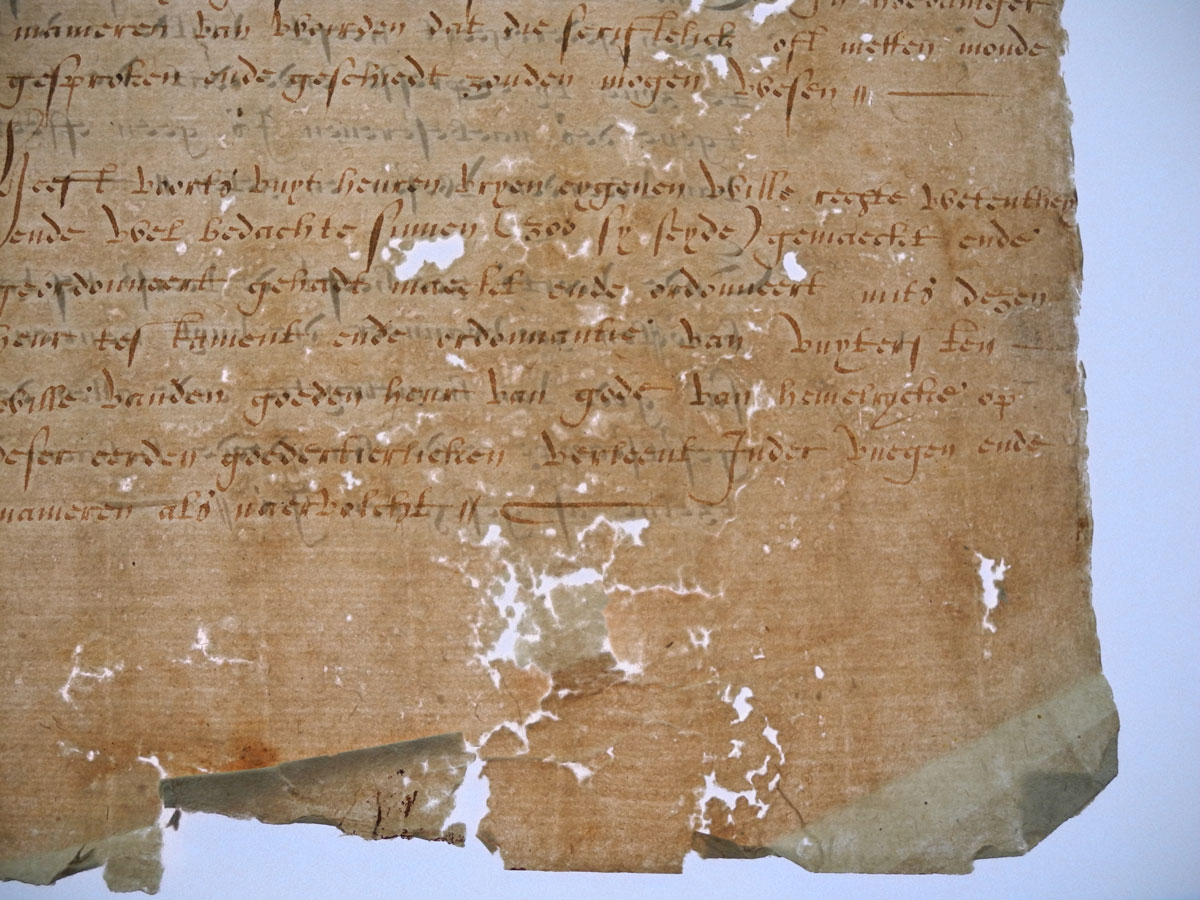 manieren van woorden dat die scriftelick oft metten monde
gesproken ende geschiedt zouden mogen wesen //
Heeft voorts vuyt heuren vryen eygenen wille rechte wetenthey
ende wel bedachte sinnen (zoo sy seyde) gemaeckt ende
geordonneert gehadt maeckt ende ordonneert mits dezen
heur testament ende ordonnantie van vuytersten
wille vanden goeden heur van gode van hemelrycke op
deser eerden goedertierlicken verleent Inder vuegen ende
manieren als naervolcht //